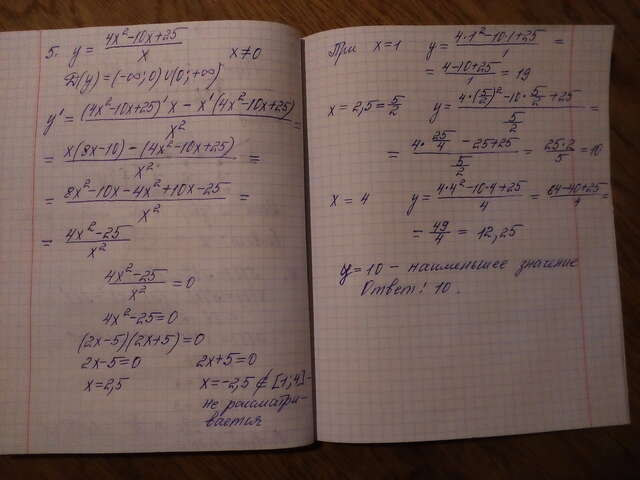 5. y = (4x²-10x+25)/x   x≠0
D(y) = (-∞; 0) ∪ (0; +∞)
y' = ((4x²-10x+25)'x - x'(4x²-10x+25))/x² =
= (x(8x-10) - (4x²-10x+25))/x² =
= (8x²-10x-4x²+10x-25)/x² =
= (4x²-25)/x²
(4x²-25)/x² = 0
4x²-25=0
(2x-5)(2x+5)=0
2x-5=0   2x+5=0
x=2,5   x=-2,5 ∉ [1;4] -
не рассматри-
вается
При x=1   y = (4·1²-10·1+25)/1 =
= (4-10+25)/1 = 19
x=2,5=5/2   y = (4·(5/2)²-10·5/2+25)/(5/2) =
= (4·25/4 -25+25)/(5/2) = 25·2/5 = 10
x = 4   y = (4·4²-10·4+25)/4 = (64-40+25)/4 =
= 49/4 = 12,25
y=10 - наименьшее значение
Ответ: 10.